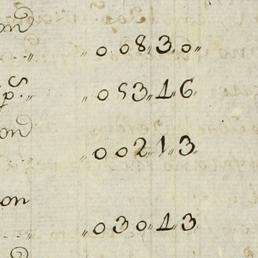 on
„ 0 0 8 „ 3 „ 0 „
p. „ „ 0 5 3 „ 1 „ 6
on
„ 0 0 2 „ 1 „ 3
on
„ 0 3 0 „ 1 „ 3